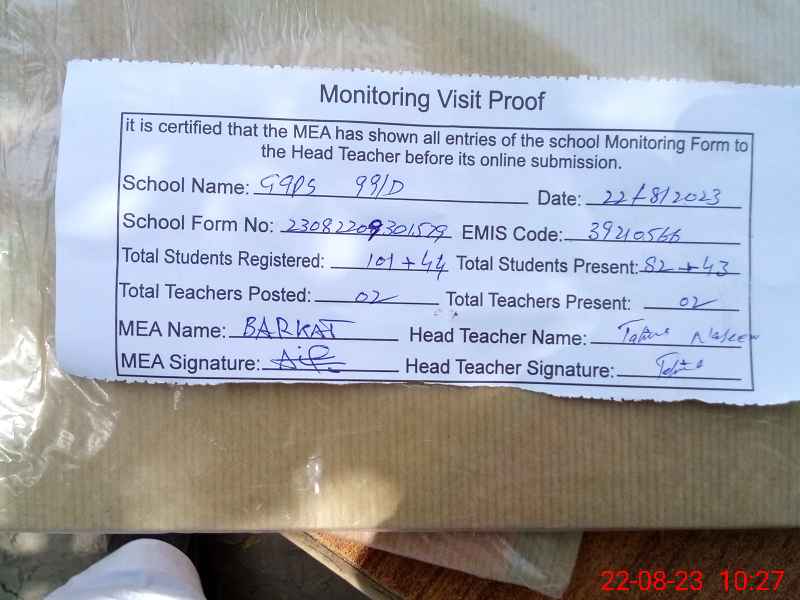 Monitoring Visit Proof
it is certified that the MEA has shown all entries of the school Monitoring Form to
the Head Teacher before its online submission.
School Name: GGPS 99/D Date: 22/8/2023
School Form No: 23082209301579 EMIS Code: 39210566
Total Students Registered: 101+44 Total Students Present: 82+43
Total Teachers Posted: 02 Total Teachers Present: 02
MEA Name: BARKAT Head Teacher Name:
MEA Signature: Head Teacher Signature:
22-08-23 10:27